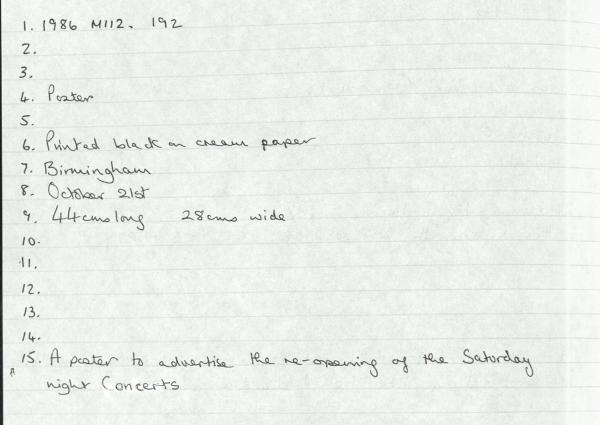 1. 1986 M112. 192
2.
3.
4. Poster
5.
6. Printed black on cream paper
7. Birmingham
8. October 21st
9. 44cms long 28cms wide
10.
11.
12.
13.
14.
15. A poster to advertise the re-opening of the Saturday
night Concerts